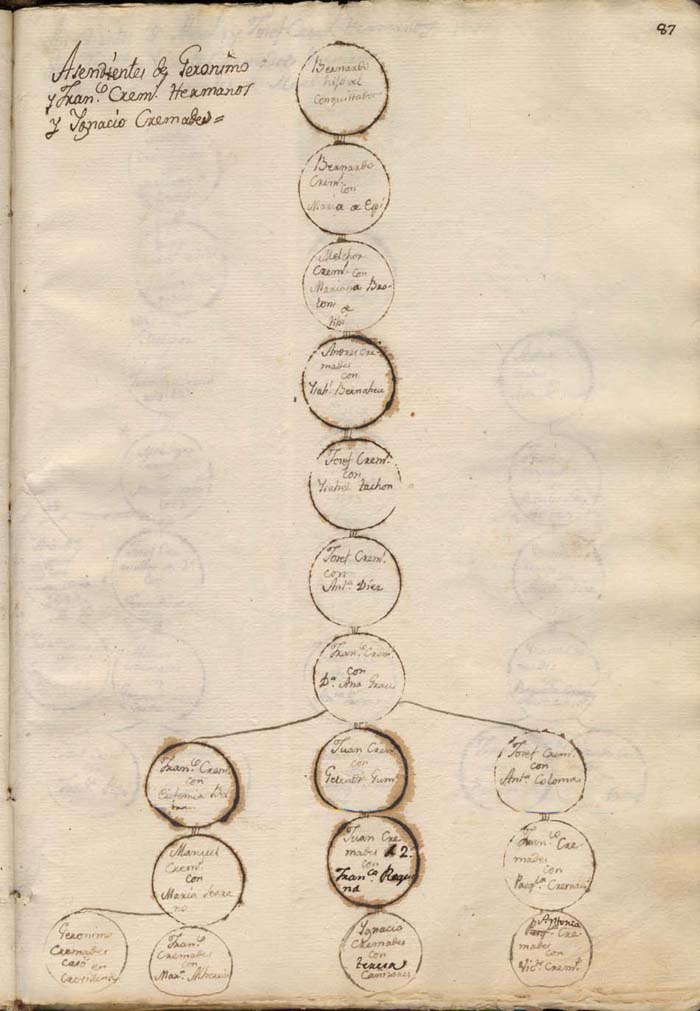 87
Asendientes de Geronimo
y Fran.co Crem.s Hermanos
y Ygnacio Cremades =
Bernardo
hijo al
Conquistador
Bernardo
Crem.s
con
Maria de
Melchor
Crem.s con
Mariana Bro-
tons
de
Andres Cre
mades
con
Ysab.l Bernabeu
Josef Crem.s
con
Ysabel
Josef Crem.s
con
Ant.a Diez
Fran.co Crem.s
con
D.a Ana
Fran.co Crem.s
con
Eufemia
Juan Crem.s
con
Josef Crem.s
con
Ant.a Coloma
Manuel
Crem.s
con
Maria Serra
no
Juan Cre
mades 2.o
con
Fran.ca Reque
na
Fran.co Cre
mades
con
Geronimo
Cremades
casó en
Crevillente
Fran.co
Cremades
con
Mar.a
Ygnacio
Cremades
con
teresa
Cre
mades
con
Crem.s